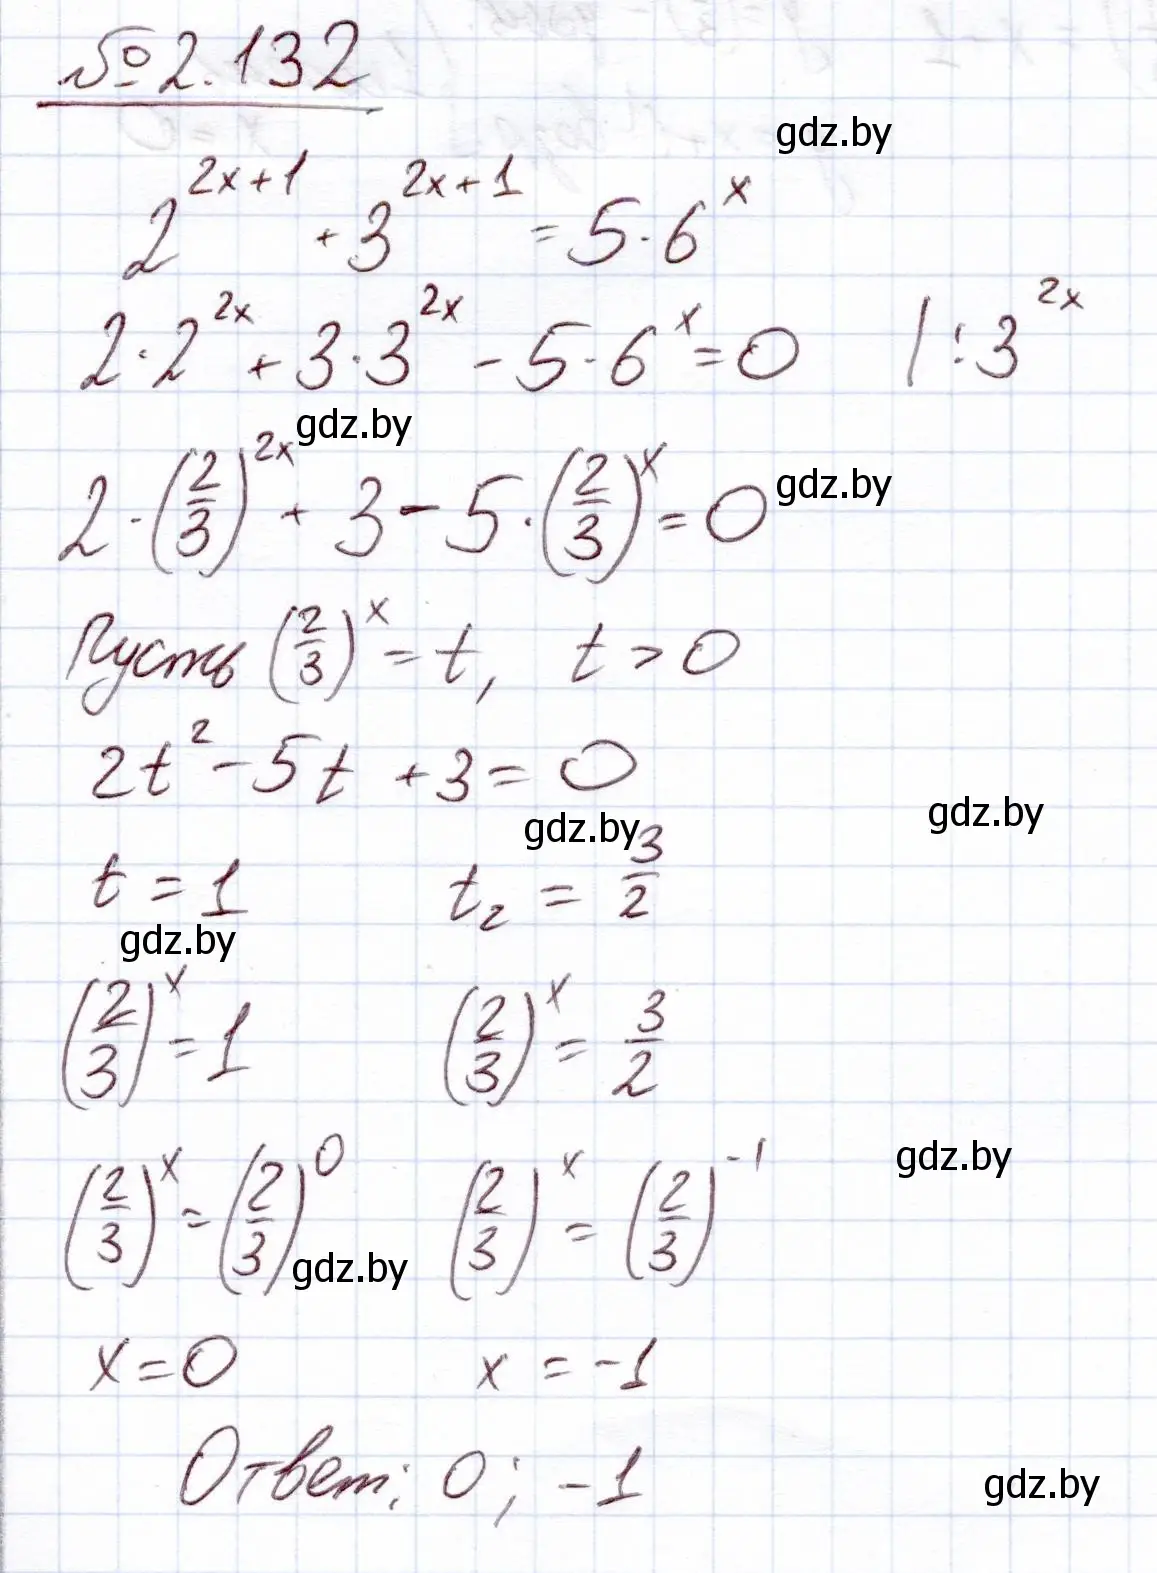 № 2.132
gdz.by
2^(2x+1) + 3^(2x+1) = 5·6^x
2·2^(2x) + 3·3^(2x) - 5·6^x = 0 | :3^(2x)
gdz.by
2·(2/3)^(2x) + 3 - 5·(2/3)^x = 0 gdz.by
Пусть (2/3)^x = t, t > 0
2t² - 5t + 3 = 0
gdz.by gdz.by
t = 1 t₂ = 3/2
gdz.by
(2/3)^x = 1 (2/3)^x = 3/2
gdz.by
(2/3)^x = (2/3)^0 (2/3)^x = (2/3)^(-1)
gdz.by
x = 0 x = -1
Ответ: 0; -1 gdz.by